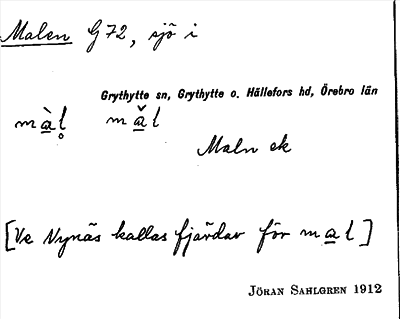 Malen G72, sjö i
Grythytte sn, Grythytte o. Hällefors hd, Örebro län
m à̲ l̥ m ǎ̲ l
Maln ek
[Ve Nynäs kallas fjärdar för m a̲ l]
JÖRAN SAHLGREN 1912